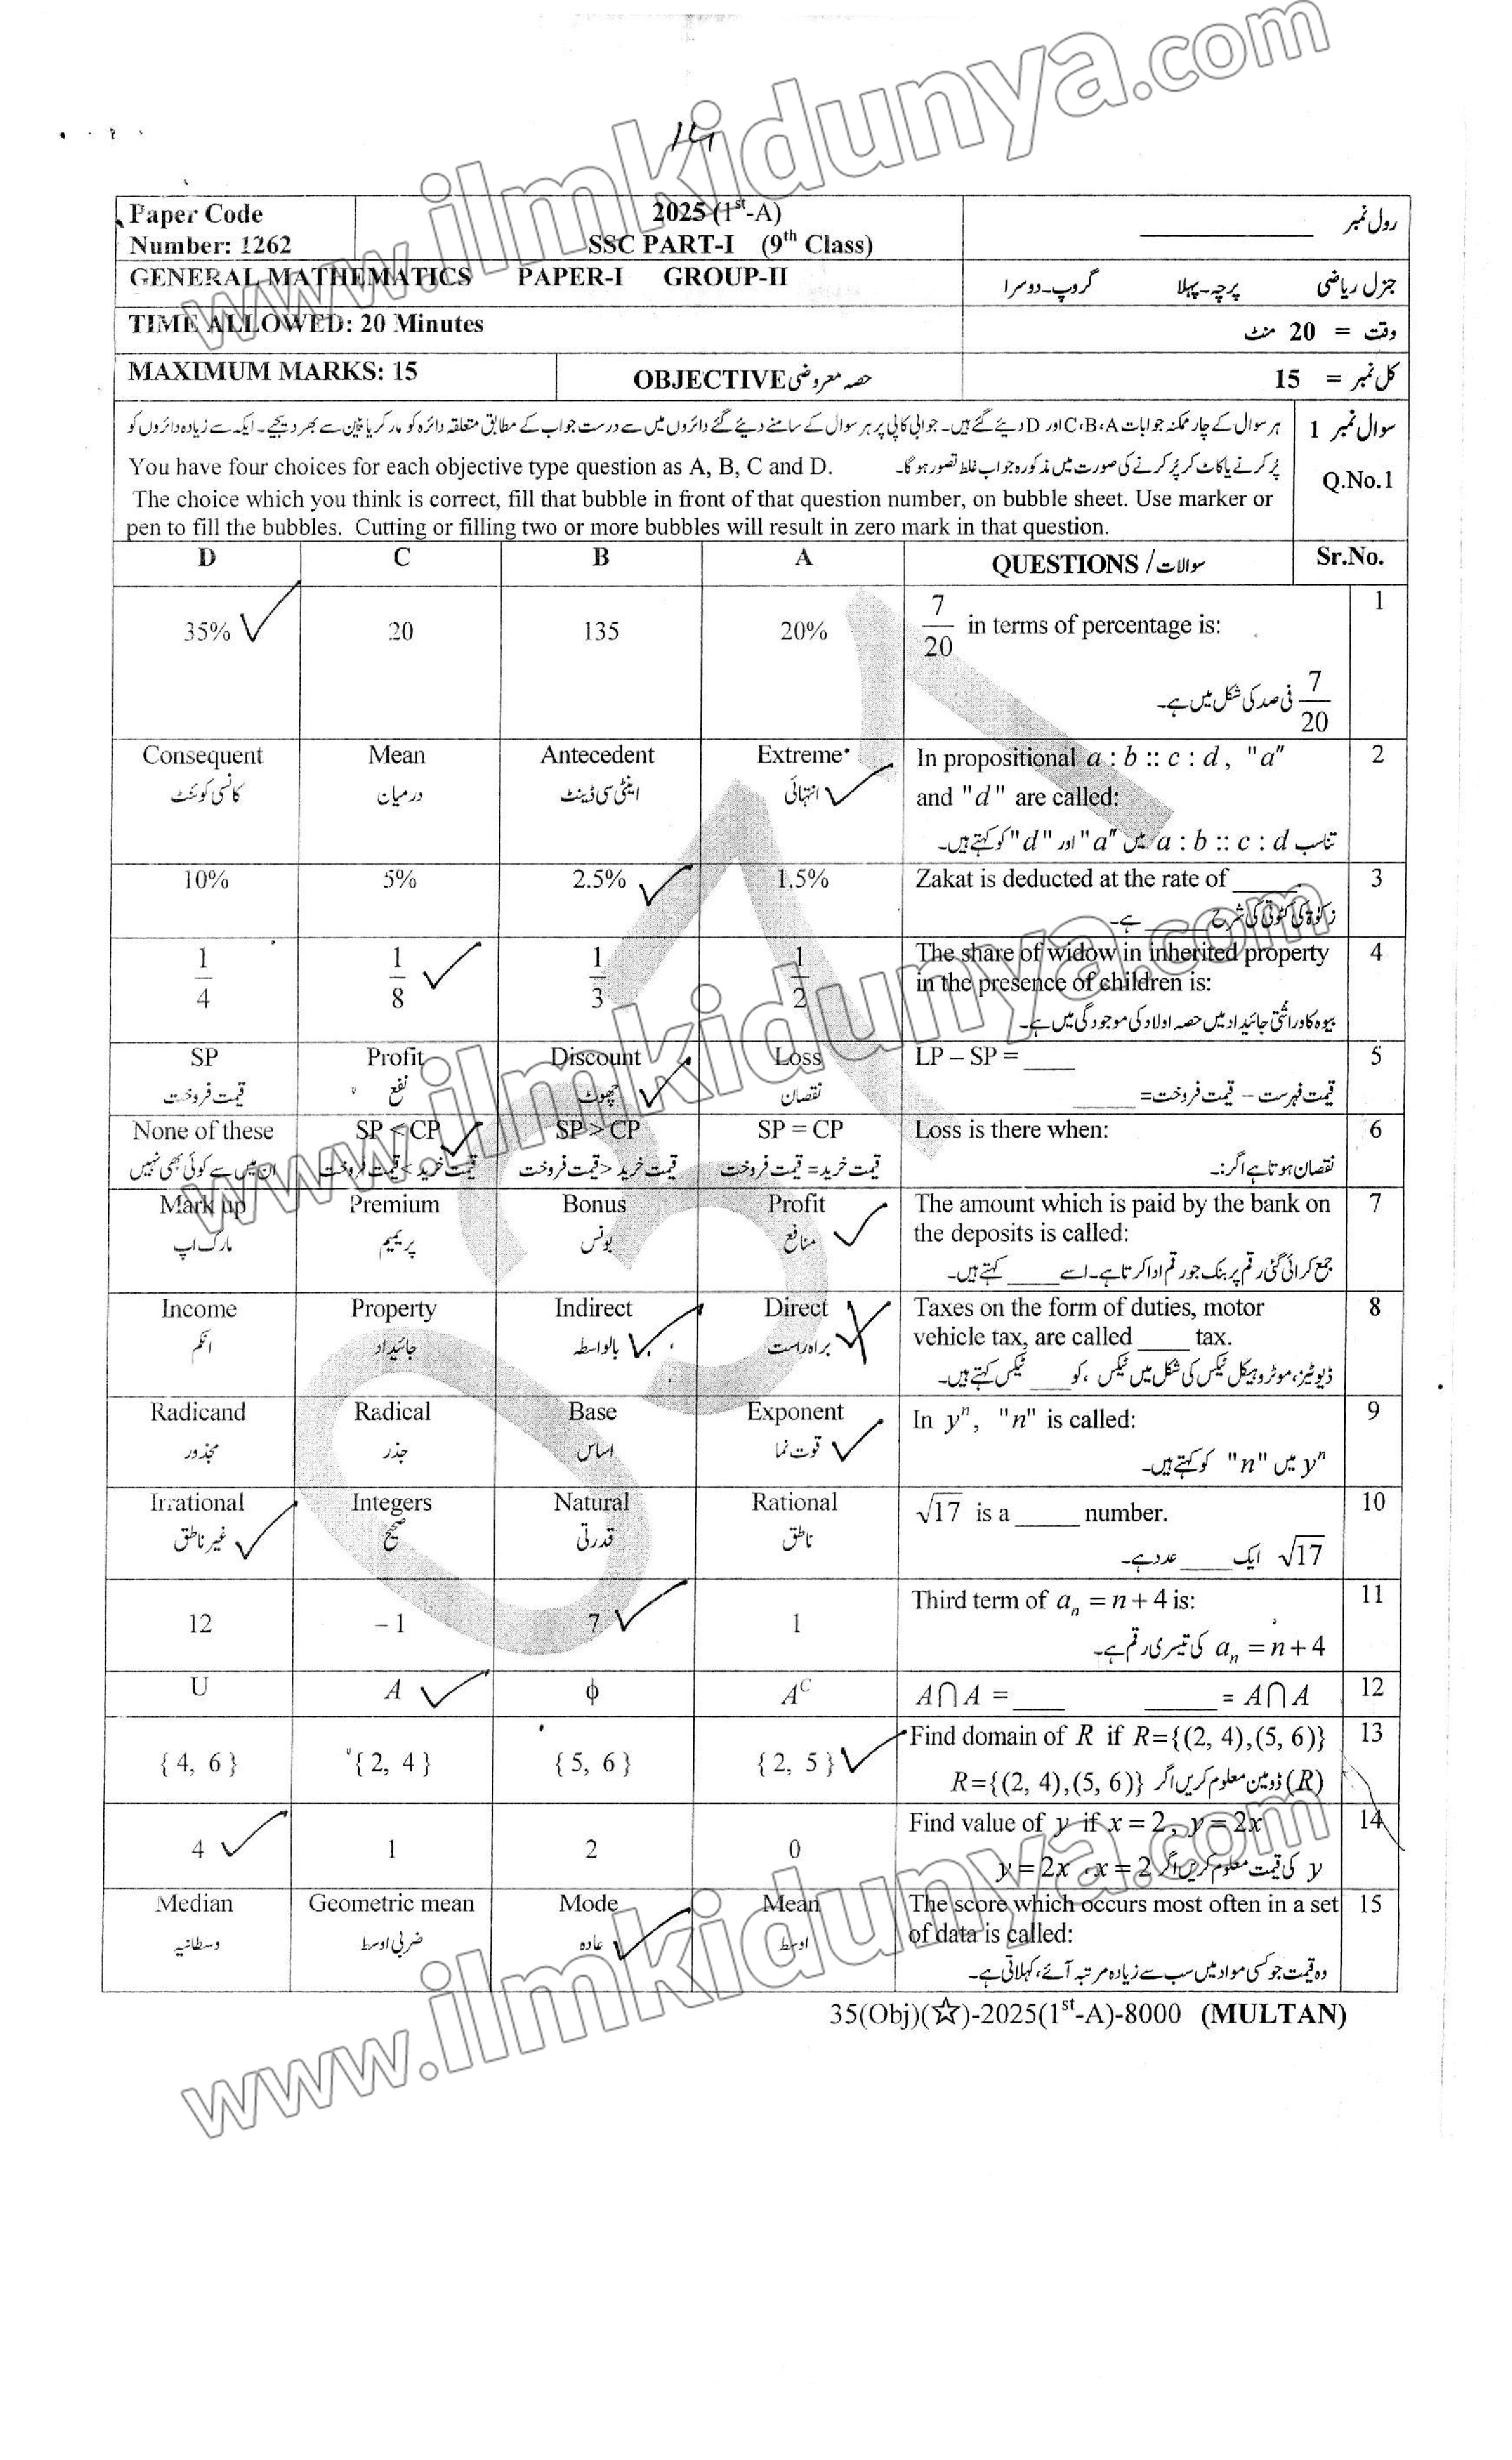 www.ilmkidunya.com
Paper Code
Number: 1262
2025 (1st-A)
SSC PART-I (9th Class)
رول نمبر ____________
GENERAL MATHEMATICS PAPER-I GROUP-II
جنرل ریاضی پرچہ۔پہلا گروپ۔دوسرا
TIME ALLOWED: 20 Minutes
وقت = 20 منٹ
MAXIMUM MARKS: 15
OBJECTIVE حصہ معروضی
کل نمبر = 15
سوال نمبر 1
Q.No.1
ہر سوال کے چار ممکنہ جوابات A،B،C اور D دیئے گئے ہیں۔ جوابی کاپی پر ہر سوال کے سامنے دیئے گئے دائروں میں سے درست جواب کے مطابق متعلقہ دائرہ کو مارکر یا پین سے بھر دیجیے۔ ایک سے زیادہ دائروں کو
پُر کرنے یا کاٹ کر پُر کرنے کی صورت میں مذکورہ جواب غلط تصور ہو گا۔
You have four choices for each objective type question as A, B, C and D.
The choice which you think is correct, fill that bubble in front of that question number, on bubble sheet. Use marker or
pen to fill the bubbles. Cutting or filling two or more bubbles will result in zero mark in that question.
D C B A QUESTIONS / سوالات Sr.No.
35% 20 135 20% 7/20 in terms of percentage is: 1
7/20 فی صد کی شکل میں ہے۔
Consequent Mean Antecedent Extreme In propositional a : b :: c : d, "a" 2
and "d" are called:
کانسی کوئنٹ درمیان اینٹی سی ڈینٹ انتہائی
تناسب a : b :: c : d میں "a" اور "d" کو کہتے ہیں۔
10% 5% 2.5% 1.5% Zakat is deducted at the rate of _____. 3
زکوٰۃ کی کٹوتی کی شرح _____ ہے۔
1/4 1/8 1/3 1/2 The share of widow in inherited property 4
in the presence of children is:
بیوہ کا وراثتی جائیداد میں حصہ اولاد کی موجودگی میں ہے۔
SP Profit Discount Loss LP – SP = ____ 5
قیمت فروخت نفع چھوٹ نقصان قیمت فہرست – قیمت فروخت = _____
None of these SP < CP SP > CP SP = CP Loss is there when: 6
ان میں سے کوئی بھی نہیں قیمت خرید > قیمت فروخت قیمت خرید < قیمت فروخت قیمت خرید = قیمت فروخت نقصان ہوتا ہے اگر:۔
Mark up Premium Bonus Profit The amount which is paid by the bank on 7
the deposits is called:
مارک اپ پریمیم بونس منافع
جمع کرائی گئی رقم پر بنک جو رقم ادا کرتا ہے۔ اسے ____ کہتے ہیں۔
Income Property Indirect Direct Taxes on the form of duties, motor 8
vehicle tax, are called ____ tax.
انکم جائیداد بالواسطہ براہ راست
ڈیوٹیز، موٹر وہیکل ٹیکس کی شکل میں ٹیکس ، کو ____ ٹیکس کہتے ہیں۔
Radicand Radical Base Exponent In yⁿ, "n" is called: 9
مجذور جذر اساس قوت نما yⁿ میں "n" کو کہتے ہیں۔
Irrational Integers Natural Rational √17 is a _____ number. 10
غیر ناطق صحیح قدرتی ناطق √17 ایک ____ عدد ہے۔
12 – 1 7 1 Third term of aₙ = n + 4 is: 11
aₙ = n + 4 کی تیسری رقم ہے۔
U A ϕ Aᶜ A∩A = ____ ______ = A∩A 12
{ 4, 6 } { 2, 4 } { 5, 6 } { 2, 5 } Find domain of R if R={(2, 4),(5, 6)} 13
(R) ڈومین معلوم کریں اگر R={(2, 4),(5, 6)}
4 1 2 0 Find value of y if x = 2, y = 2x 14
y کی قیمت معلوم کریں اگر x = 2، y = 2x
Median Geometric mean Mode Mean The score which occurs most often in a set 15
of data is called:
وسطانیہ ضربی اوسط عادہ اوسط
وہ قیمت جو کسی مواد میں سب سے زیادہ مرتبہ آئے، کہلاتی ہے۔
35(Obj)(☆)-2025(1st-A)-8000 (MULTAN)
www.ilmkidunya.com
www.ilmkidunya.com